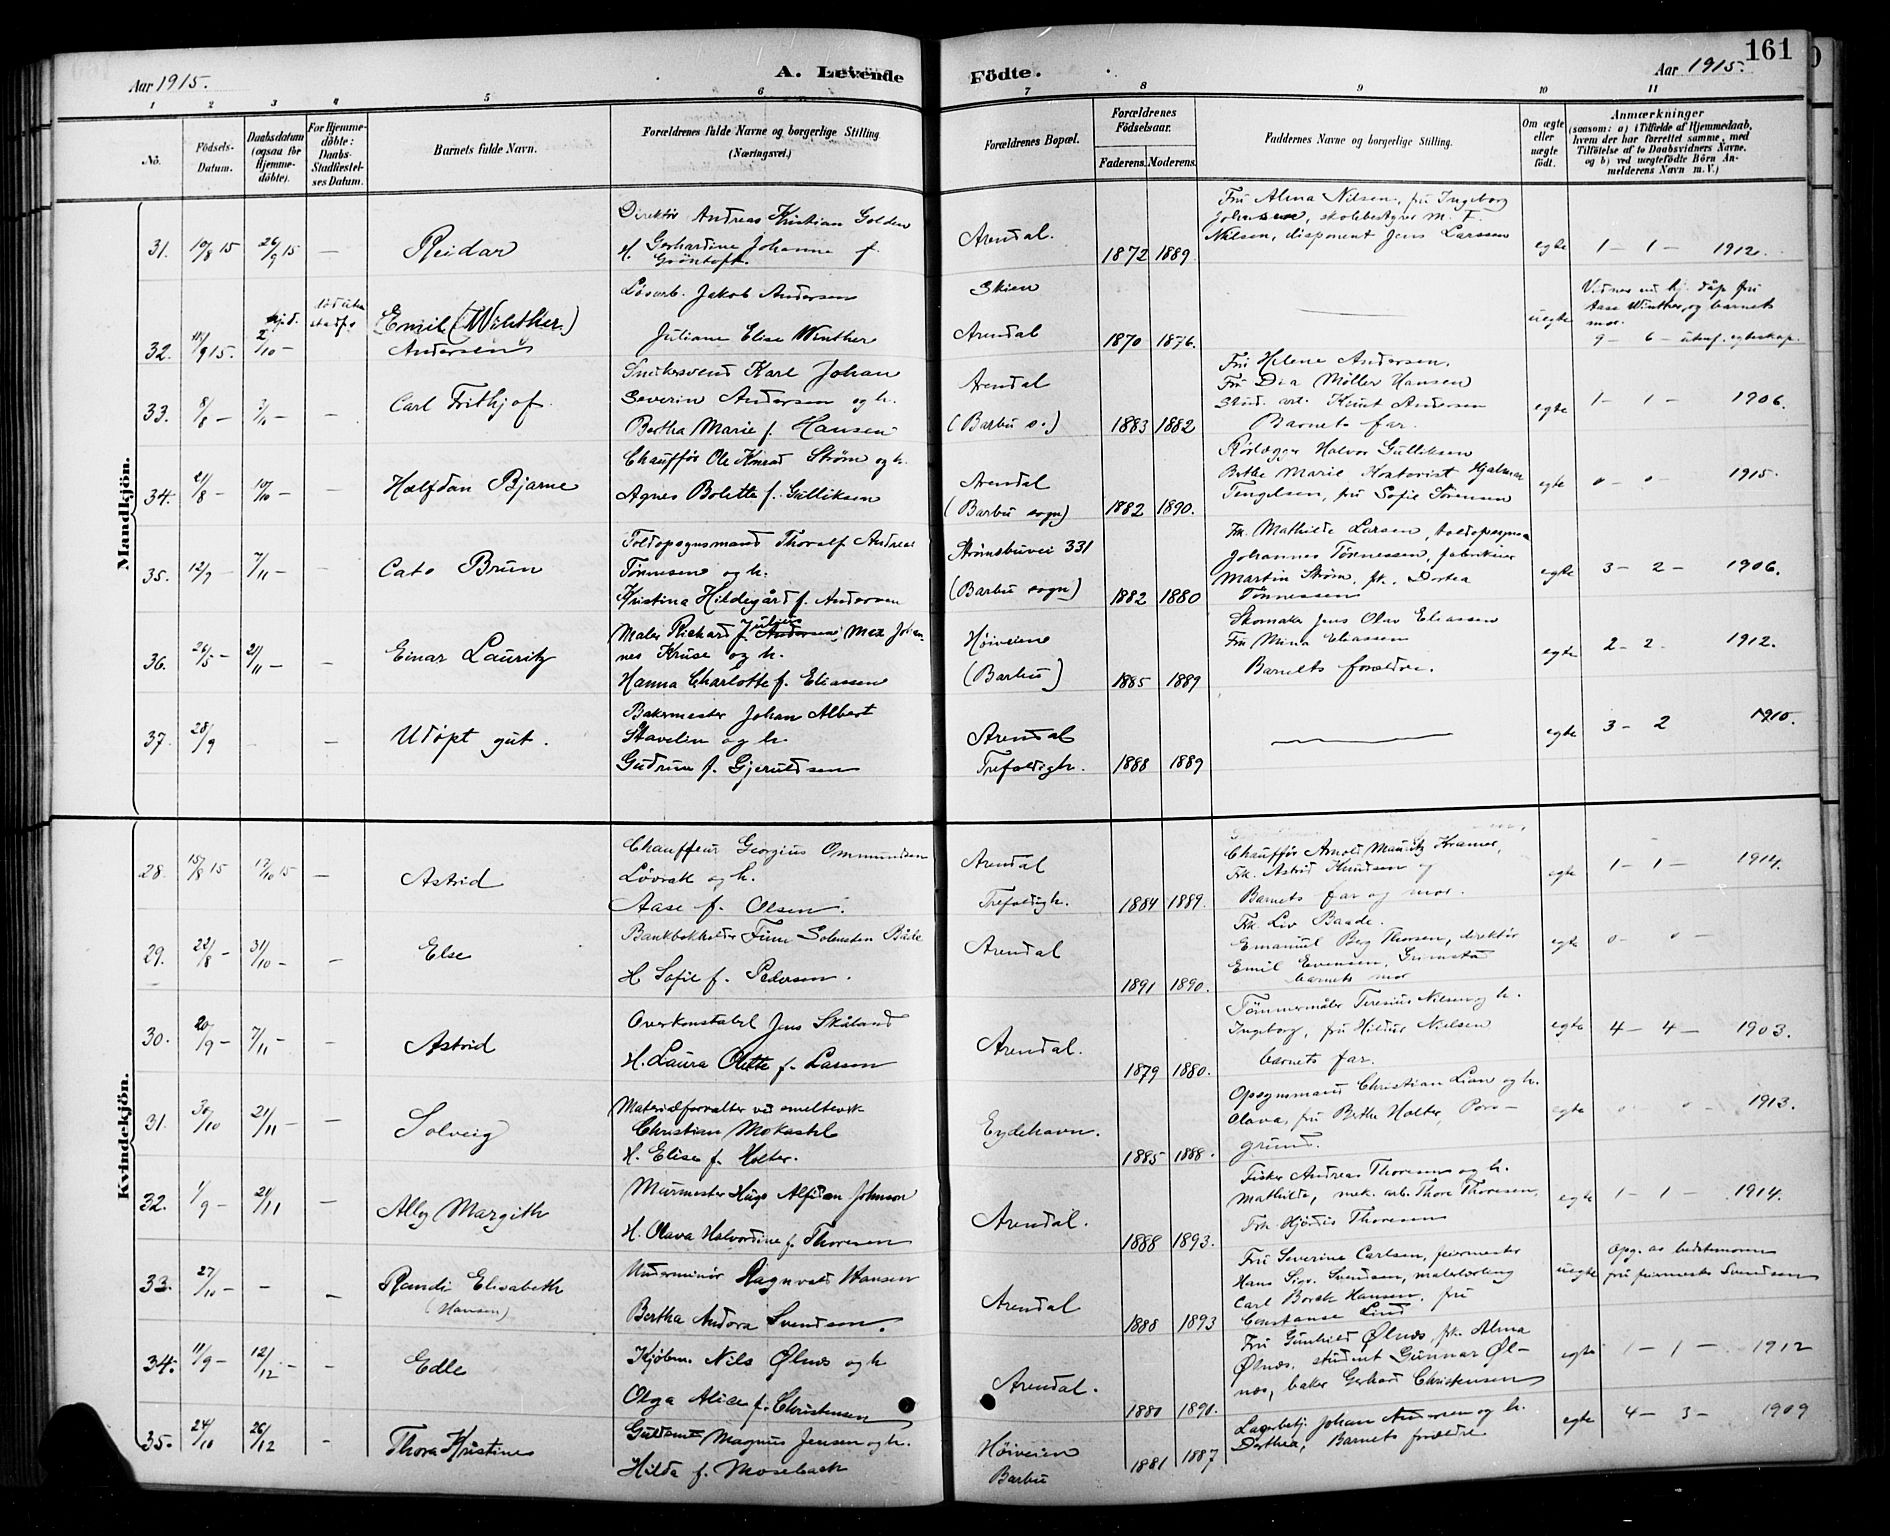 161
Aar 1915.
A. Levende Födte.
Aar 1915.
1 2 3 4 5 6 7 8 9 10 11
No.
Födsels-Datum.
Daabsdatum (ogsaa for Hjemme-døbte).
For Hjemme-døbte: Daabs-Stadfæstel-ses Datum.
Barnets fulde Navn.
Forældrenes fulde Navne og borgerlige Stilling.
(Næringsvei.)
Forældrenes Bopæl.
Forældrenes Födselsaar.
Faderens. Moderens.
Faddernes Navne og borgerlige Stilling.
Om ægte eller uægte født.
Anmærkninger
(saasom: a) i Tilfælde af Hjemmedaab, hvem der har forrettet samme, med Tilföielse af to Daabsvidners Navne, og b) ved uægtefödte Börn An-melderens Navn m. V.)
Mandkjön.
31. 10/8 15 26/9 15 — Reidar
Direktør Andreas Kristian Golden
H. Gerhardine Johanne f. Grøntoft.
Arendal. 1872 1889.
Fru Alma Nilsen, fru Ingeborg
Johansen, skolebestyrer M. F.
Nilsen, disponent Jens Larssen
egte 1 — 1 — 1912.
32. 9 15. hjd. 2/10 — Emil (Winther)
Andersen
Løsarb. Jakob Andersen
Juliane Elise Winther
Skien
Arendal 1870 1876.
uegte
Vidner ved hj. dåp fru
Aase Winther, og barnets
mor.
9 — 6 — utenf. egteskap.
33. 8/8 — — Carl Frithjof.
Snekersvend Karl Johan
Severin Andersen og h.
Bertha Marie f. Hansen
Arendal
(Barbu s.) 1883 1882
Fru Helene Andersen.
Fru Dea Møller Hansen
Stud. art. Knut Andersen
Barnets far.
egte 1 — 1 — 1906.
34. 21/8 — 10/10 — — Halfdan Bjarne
Chauffør Ole Knud Strøm og h.
Agnes Bolette f. Gulliksen
Arendal
(Barbu sogn) 1882 1890.
Rørlægger Halvor Gulliksen
Berthe Marie Hjalmar
Tengelsen, fru Sofie Sørensen
egte 0 — 0 — 1915.
35. 12/9 — 7/11 — — Cato Brun
Toldopsynsmand Thoralf Andreas
Tønnesen og h.
Kristina Hildegård f. Andersen
Strømsbuvei 331
(Barbu sogn) 1882 1880
Frk. Mathilde Larsen, toldopsynsm
Johannes Tønnessen, fabrikeier
Martin Strøm, frk. Dortea
Tønnessen
egte 3 — 2 — 1906.
36. 26/5 — 21/11 — — Einar Lauritz
Maler Richard Julius Max Johan-
nes Kruse og h.
Hanna Charlotte f. Eliassen
Høiveiene
(Barbu) 1885 1889
Skomaker Jens Olav Eliassen
Fru Mina Eliassen
Barnets forældre.
egte 2 — 2. 1912.
37. 28/9 — — Udøpt gut.
Bakermester Johan Albert
Stavelin og h.
Gudrun f. Gjeruldsen
Arendal
Trefoldigh. 1888 1889
egte 3 — 2 1910.
Kvindekjön.
28. 15/8 15 17/10 15 — Astrid
Chauffeur Georgius Ommundsen
Løvrak og h.
Aase f. Olsen.
Arendal
Trefoldigh. 1884 1889.
Chauffør Arnold Mauritz Kramer,
Frk. Astrid Knudsen og
Barnets far og mor.
egte 1 — 1 — 1914.
29. 22/8 — 31/10 — Else
Bankbokholder Finn Solmsten Både
H Sofie f. Pedersen.
Arendal 1891 1890.
Frk. Liv Baade.
Emanuel Berg Thorsen, direktør
Emil Evensen, Grimstad
barnets mor
egte 0 — 0 —
30. 20/9 — 7/11 — — Astrid
Overkonstabel Jens Skåland
H. Laura Olette f. Larsen
Arendal. 1879 1880.
Tømmermåler Teresius Nilsen og h.
Ingeborg, fru Hildur Nielsen
barnets far.
egte 4 — 4 — 1903.
31. 30/10 21/11 — — Solveig
Materialforvalter ved smelteverk
Christian Mokastel
H. Elise f. Holter.
Eydehavn. 1885 1888.
Opsynsmand Christian Lian og h.
Olava, fru Berthe Holter, Pors-
grund.
egte 0 — 0 — 1913.
32. 1/9 — 21/11 — Ally Margith
Murmester Hugo Alfidan Johnson
H. Olava Halvordine f. Thoresen
Arendal. 1888 1893.
Fisker Andreas Thoresen og h.
Mathilde, mek. arb. Thore Thoresen,
Frk Hjørdis Thoresen
egte 1 — 1 — 1914.
33. 27/10 — — — Randi Elisabeth
(Hansen)
Underminør Ragnvald Hansen
Bertha Andora Svendsen.
Arendal 1888 1893
Fru Severine Carlsen, feiermester
Hans Sigv. Svendsen, malerlærling
Carl Borch Hansen, fru
Constanse Lind
uegte
Opg. av bedstemoren
fru feiermester Svendsen
34. 11/9 — 12/12 — Edle
Kjøbm. Nils Ølnes og h
Olga Alice f. Christensen
Arendal. 1880 1890.
Fru Gunhild Ølnes, frk. Alma
Ølnes, student Gunnar Øl-
nes, baker Gerhard Christensen
egte 1 — 1 — 1912
35. 24/10 26/12 — Thora Kristine
Guldsm Magnus Jensen og h.
Hilda f. Mosebach
Høiveien
Barbu 1881 1887
Lagerbetj. Johan Andersen og h.
Dorthea, Barnets forældre
egte 4 — 3 — 1909